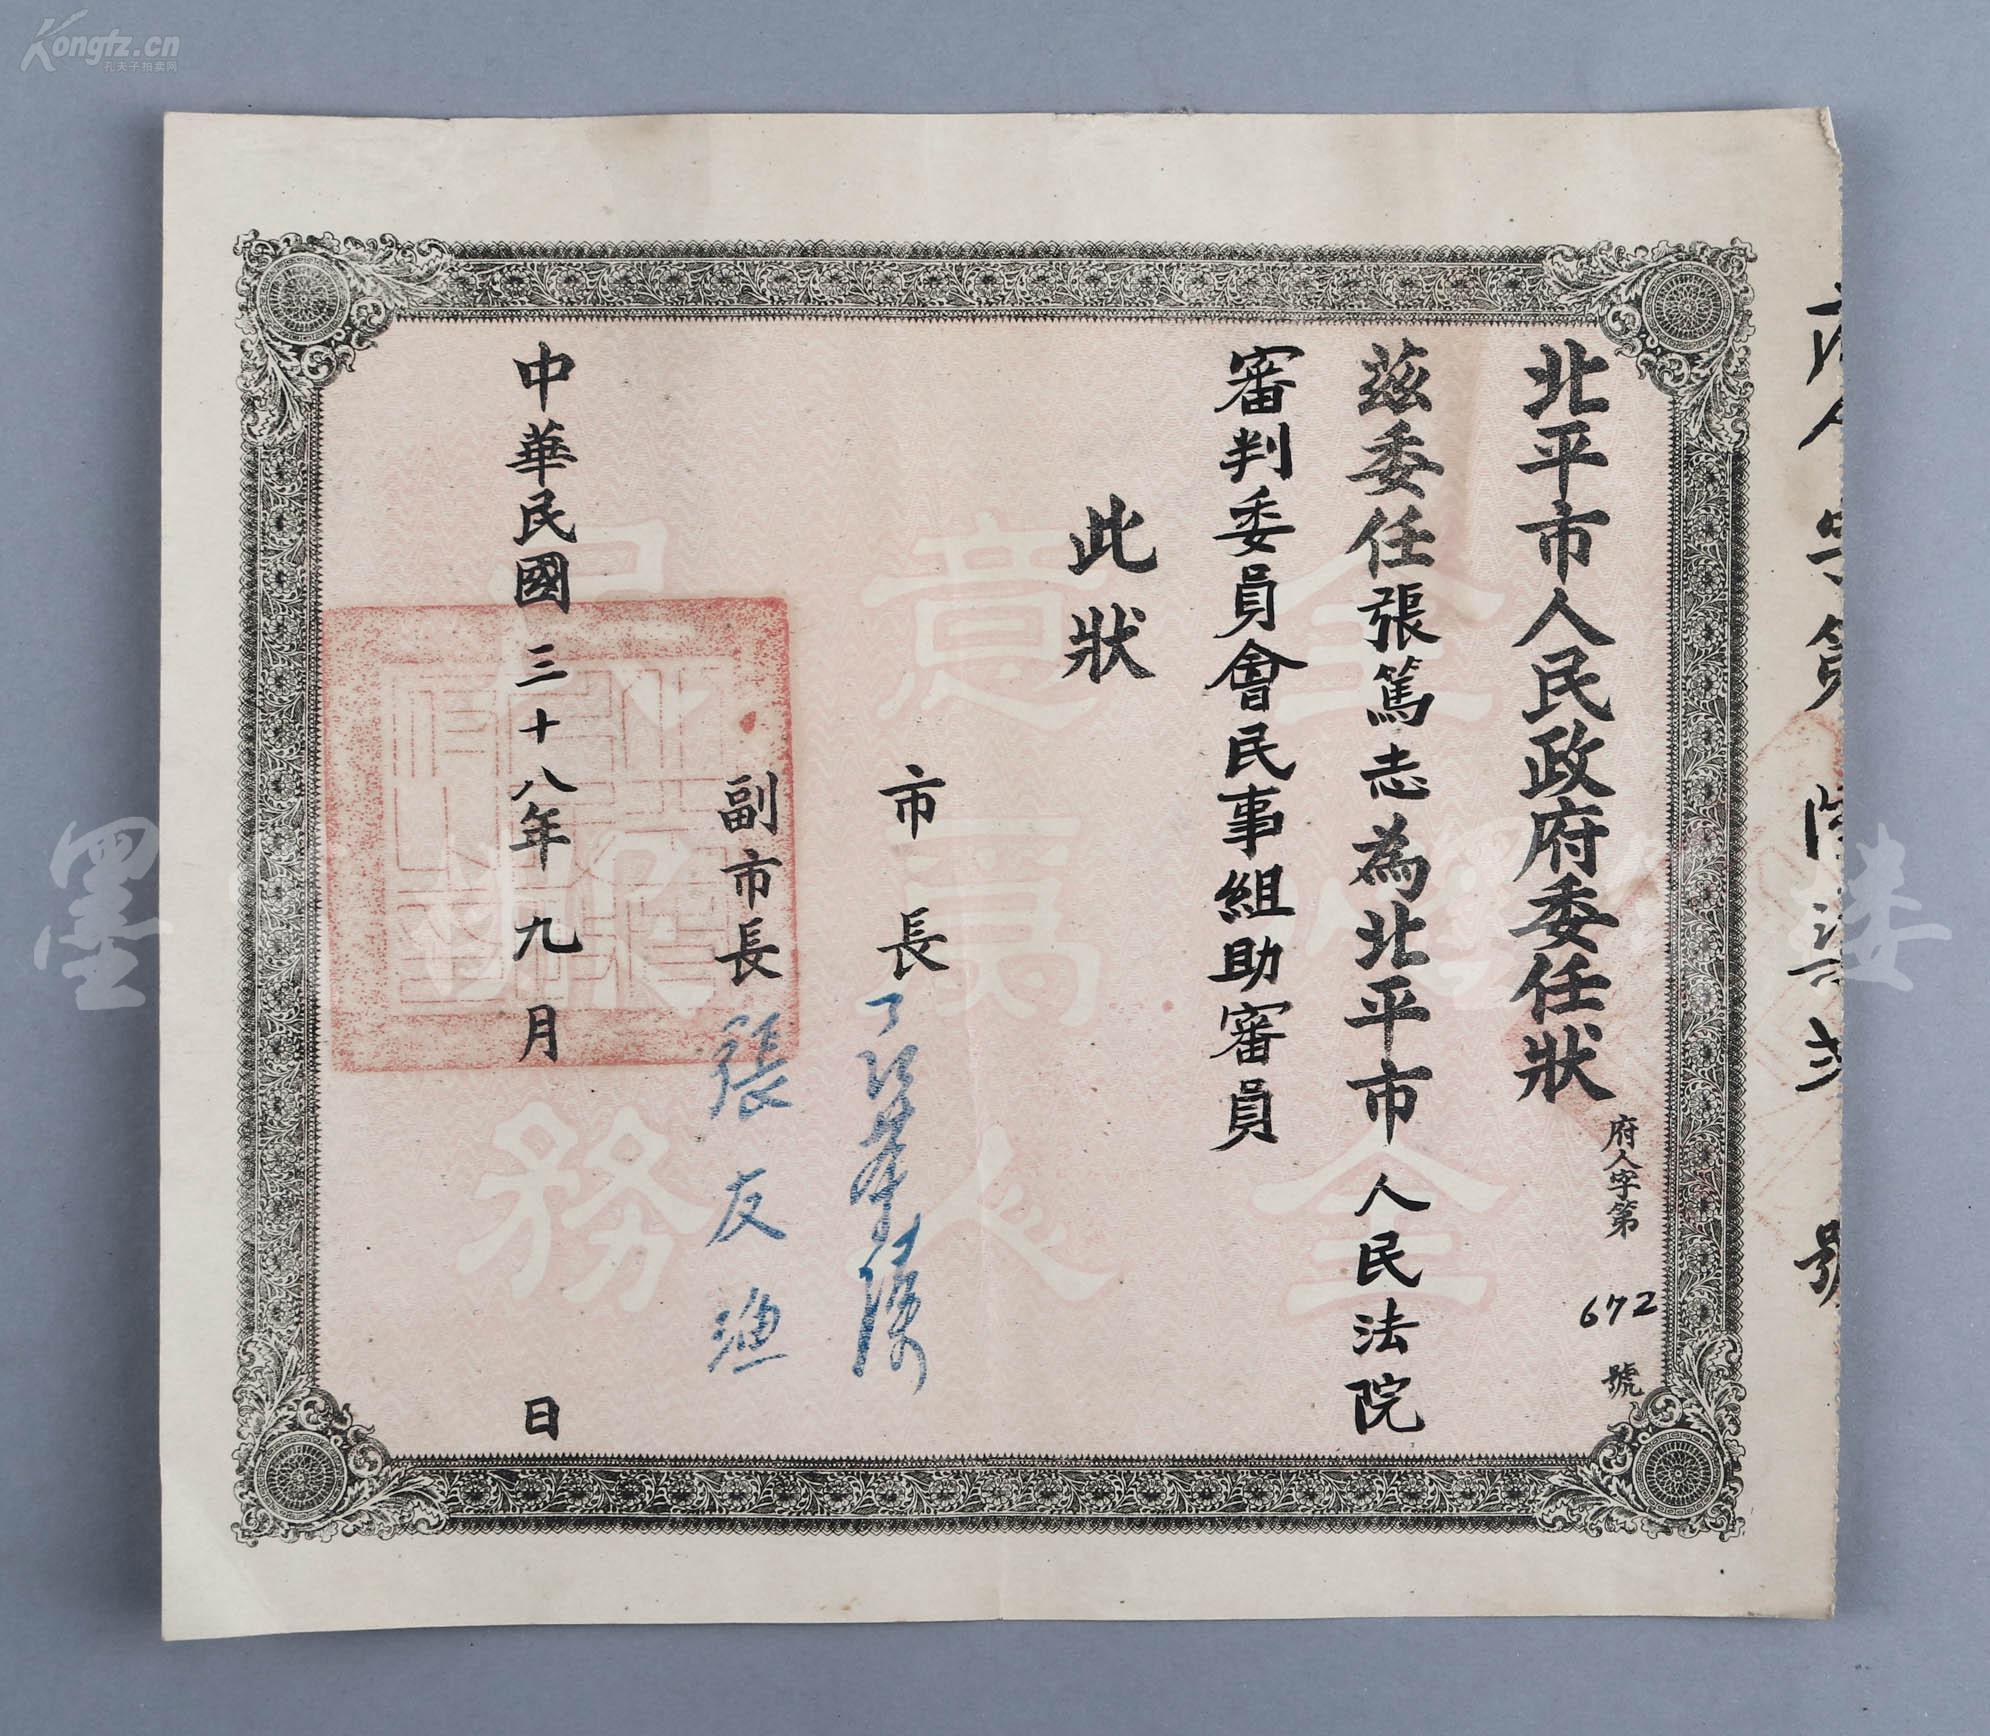 Kongfz.cn
孔夫子拍卖网
府人字第 陸柒弍 號
北平市人民政府委任状
府人字第 672 號
茲委任張篤志為北平市人民法院
審判委員會民事組助審員
此狀
市長
副市長 張友漁
中華民國三十八年九月 日
全心全
意為人
民服務
墨 楼